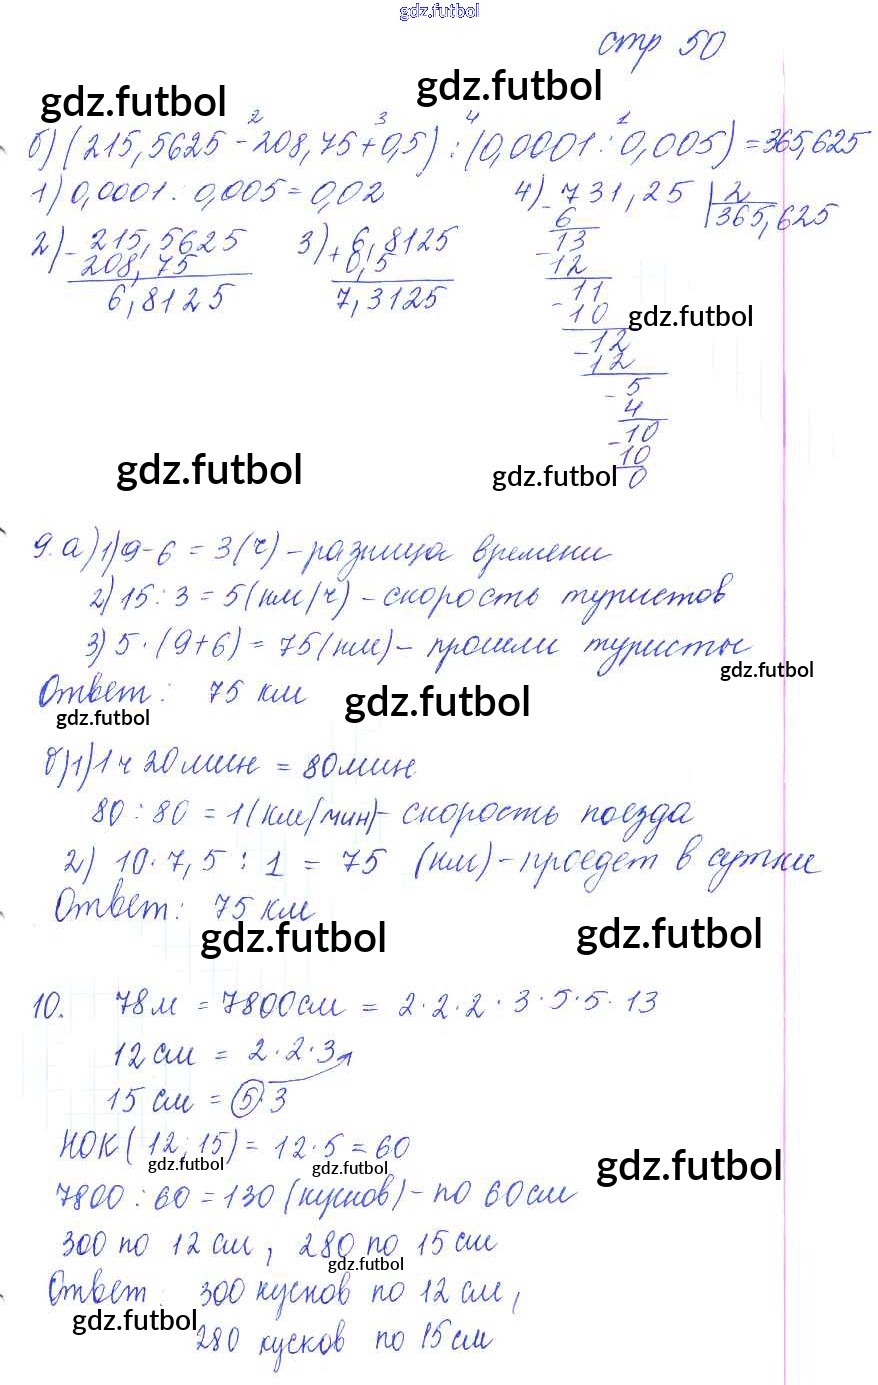 gdz.futbol
стр 50
gdz.futbol gdz.futbol
2 3 4 1
б) (215,5625 - 208,75 + 0,5) : (0,0001 : 0,005) = 365,625
1) 0,0001 : 0,005 = 0,02
4) 731,25 | 2
6 365,625
2) - 215,5625 3) + 6,8125
208,75 0,5
6,8125 7,3125
- 13
12
- 11
10
gdz.futbol
- 12
12
- 5
4
- 10
10
0
gdz.futbol gdz.futbol
9. а) 1) 9 - 6 = 3 (ч) - разница времени
2) 15 : 3 = 5 (км/ч) - скорость туристов
3) 5 · (9 + 6) = 75 (км) - прошли туристы
gdz.futbol
Ответ: 75 км gdz.futbol
gdz.futbol
б) 1) 1 ч 20 мин = 80 мин
80 : 80 = 1 (км/мин) - скорость поезда
2) 10 · 7,5 : 1 = 75 (км) - проедет в сутки
Ответ: 75 км
gdz.futbol gdz.futbol
10. 78м = 7800см = 2 · 2 · 2 · 3 · 5 · 5 · 13
12 см = 2 · 2 · 3
15 см = 5 · 3
НОК (12; 15) = 12 · 5 = 60
gdz.futbol gdz.futbol gdz.futbol
7800 : 60 = 130 (кусков) - по 60см
300 по 12 см, 280 по 15 см
gdz.futbol
Ответ: 300 кусков по 12 см,
gdz.futbol
280 кусков по 15 см